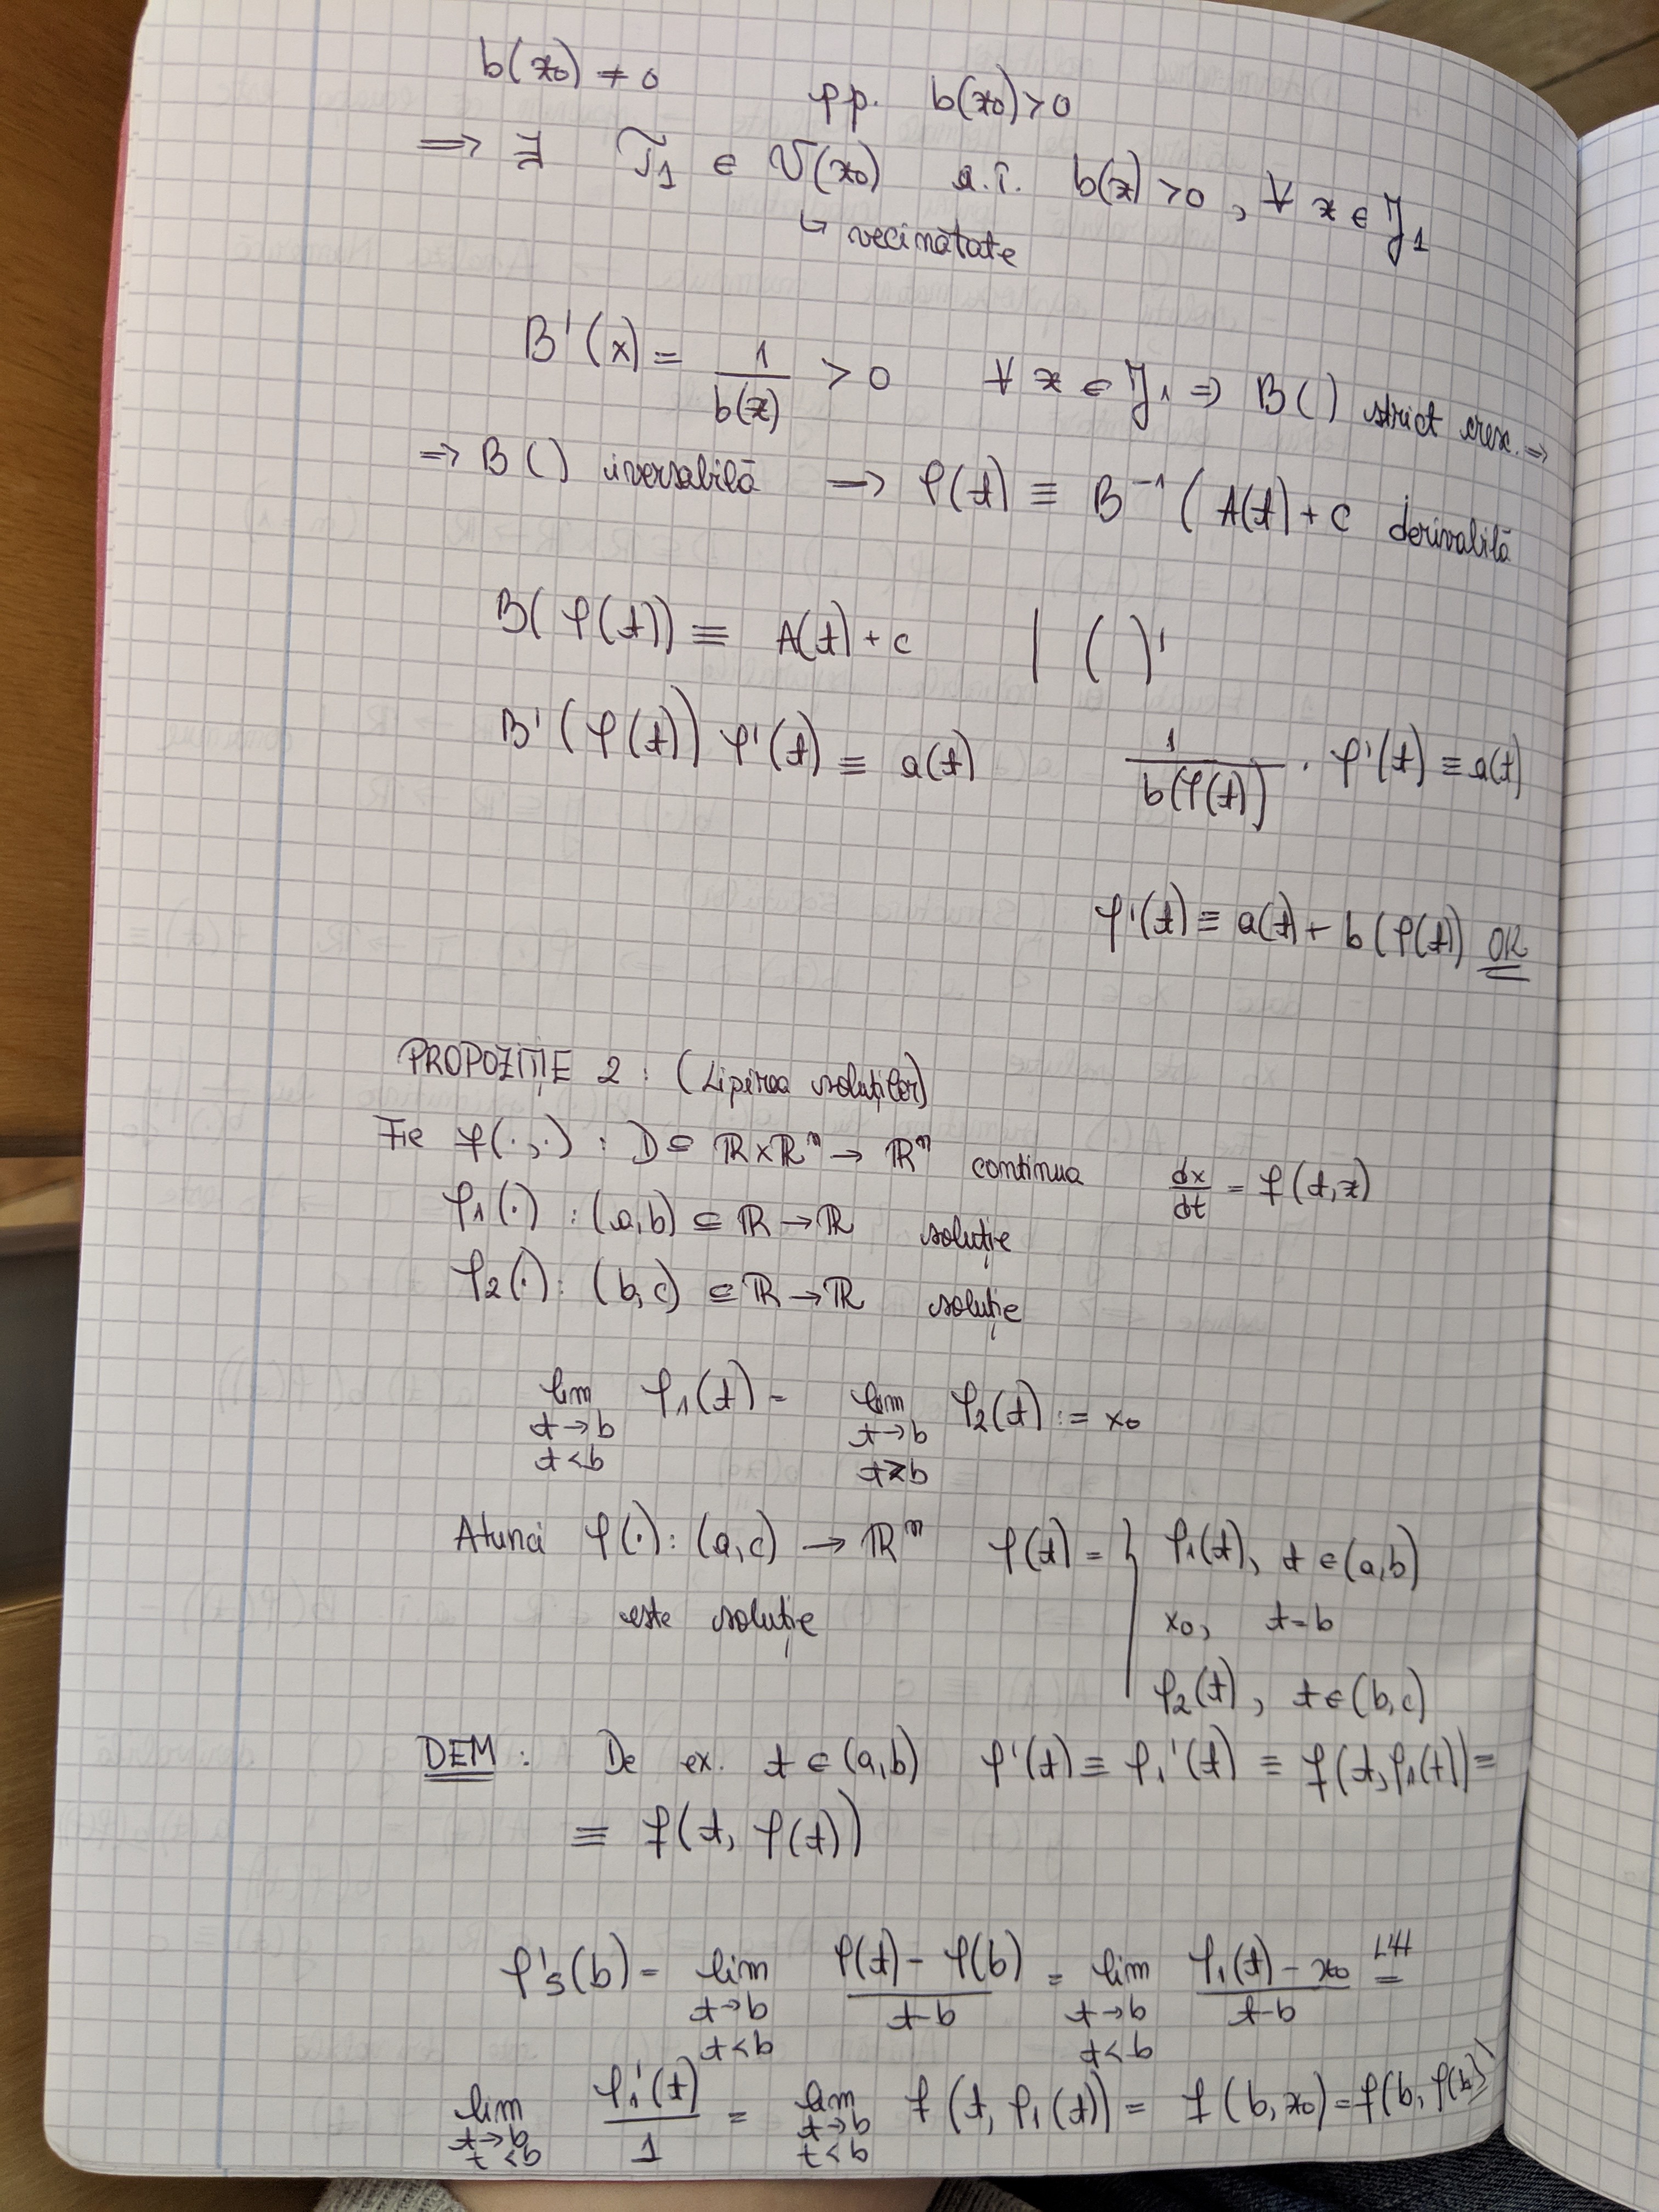 b(x₀) ≠ 0    pp. b(x₀) > 0
⟹ ∃ J₁ ∈ V(x₀) a.î. b(x) > 0, ∀ x ∈ J₁
↳ vecinatate
B'(x) = 1/b(x) > 0 ∀ x ∈ J₁ ⇒ B( ) strict cresc. ⇒
⇒ B( ) iversabilă → φ(t) ≡ B⁻¹(A(t) + c derivabilă
B(φ(t)) ≡ A(t) + c | ( )'
B'(φ(t)) φ'(t) ≡ a(t)    1/b(φ(t)) · φ'(t) ≡ a(t)
φ'(t) ≡ a(t) + b(φ(t)) OK
PROPOZIȚIE 2 : (Lipirea soluțiilor)
Fie f(·,·) : D ⊆ ℝ×ℝⁿ → ℝⁿ continua    dx/dt = f(t,x)
φ₁(·) : (a,b) ⊆ ℝ → ℝ soluție
φ₂(·) : (b,c) ⊆ ℝ → ℝ soluție
lim t→b t<b φ₁(t) = lim t→b t>b φ₂(t) := x₀
Atunci φ(·) : (a,c) → ℝⁿ    φ(t) = { φ₁(t), t ∈ (a,b)
este soluție    x₀, t=b
φ₂(t), t ∈ (b,c)
DEM : De ex. t ∈ (a,b) φ'(t) ≡ φ₁'(t) ≡ f(t,φ₁(t)) =
≡ f(t, φ(t))
φ's(b) = lim t→b t<b (φ(t) − φ(b))/(t−b) = lim t→b t<b (φ₁(t) − x₀)/(t−b) L'H =
lim t→b t<b φ₁'(t)/1 = lim t→b t<b f(t, φ₁(t)) = f(b, x₀) = f(b, φ(b))